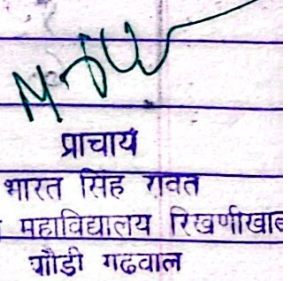 प्राचार्य
भारत सिंह रावत
महाविद्यालय रिखणीखाल
पौडी गढवाल